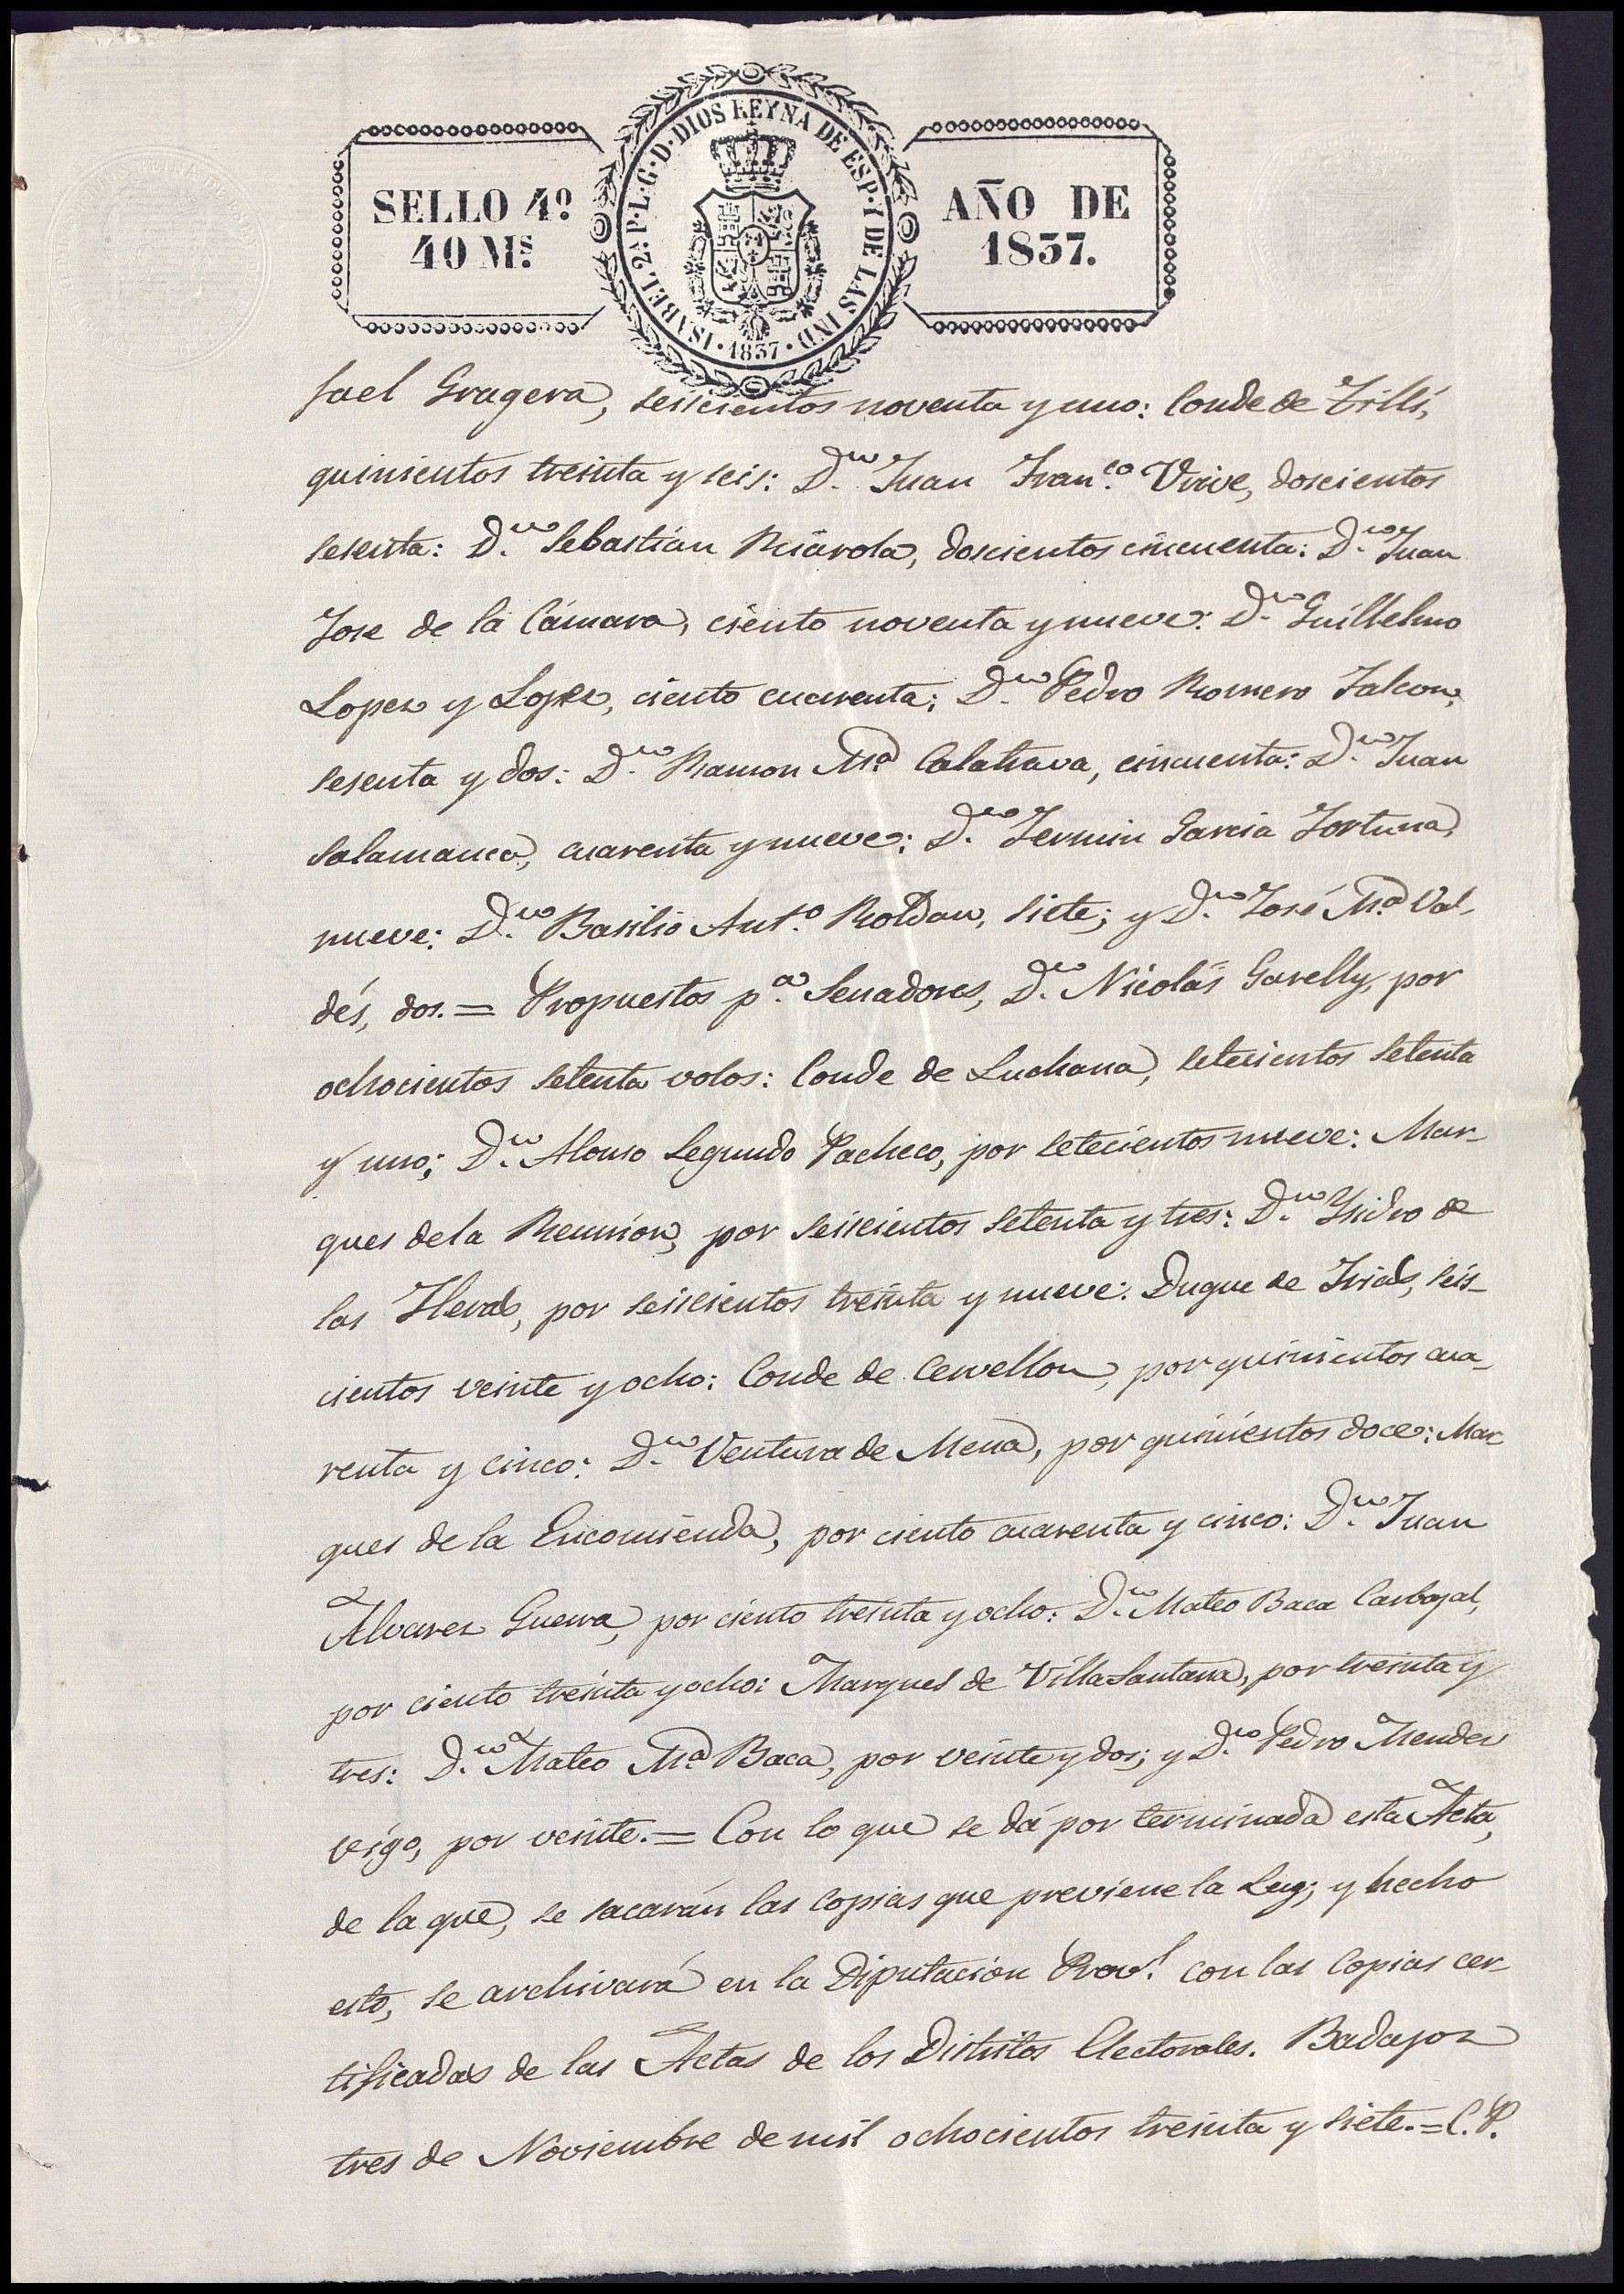 SELLO 4º
40 Mˢ.
ISABEL 2ª P. L. G. D. DIOS REYNA DE ESP. Y DE LAS IND.
1837
AÑO DE
1837.
fael Gragera, seiscientos noventa y uno: Conde de Trillí,
quinientos treinta y seis: D.ⁿ Juan Fran.ᶜᵒ Vive, doscientos
sesenta: D.ⁿ Sebastián Riárola, doscientos cincuenta: D.ⁿ Juan
Jose de la Cámara, ciento noventa y nueve: D.ⁿ Guillelmo
Lopez y Lopez, ciento cuarenta: D.ⁿ Pedro Romero Falcon,
sesenta y dos: D.ⁿ Ramon Mª Calatrava, cincuenta: D.ⁿ Juan
Salamanca, cuarenta y nueve: D.ⁿ Fermin Garcia Fortuna,
nueve: D.ⁿ Basilio Antº Roldan, siete; y D.ⁿ José Mª Val-
dés, dos. = Propuestos pª Senadores, D.ⁿ Nicolás Garelly, por
ochocientos setenta votos: Conde de Luchana, setecientos setenta
y uno; D.ⁿ Alonso Segundo Pacheco, por setecientos nueve: Mar-
ques de la Reunión, por seiscientos setenta y tres: D.ⁿ Ysidro de
las Heras, por seiscientos treinta y nueve: Duque de Frias, seis-
cientos veinte y ocho: Conde de Cervellon, por quinientos cua-
renta y cinco: D.ⁿ Ventura de Mena, por quinientos doce: Mar-
ques de la Encomienda, por ciento cuarenta y cinco: D.ⁿ Juan
Alvarez Guerra, por ciento treinta y ocho: D.ⁿ Mateo Baca Carbajal,
por ciento treinta y ocho: Marques de Villa Santana, por treinta y
tres: D.ⁿ Mateo Mª Baca, por veinte y dos; y D.ⁿ Pedro Mendez
veigo, por veinte. = Con lo que se dá por terminada esta Acta,
de la que, se sacarán las copias que previene la Ley; y hecho
esto, se archivará en la Diputación Provˡ. con las copias cer-
tificadas de las Actas de los Distritos Electorales. Badajoz
tres de Noviembre de mil ochocientos treinta y siete. = C. P.